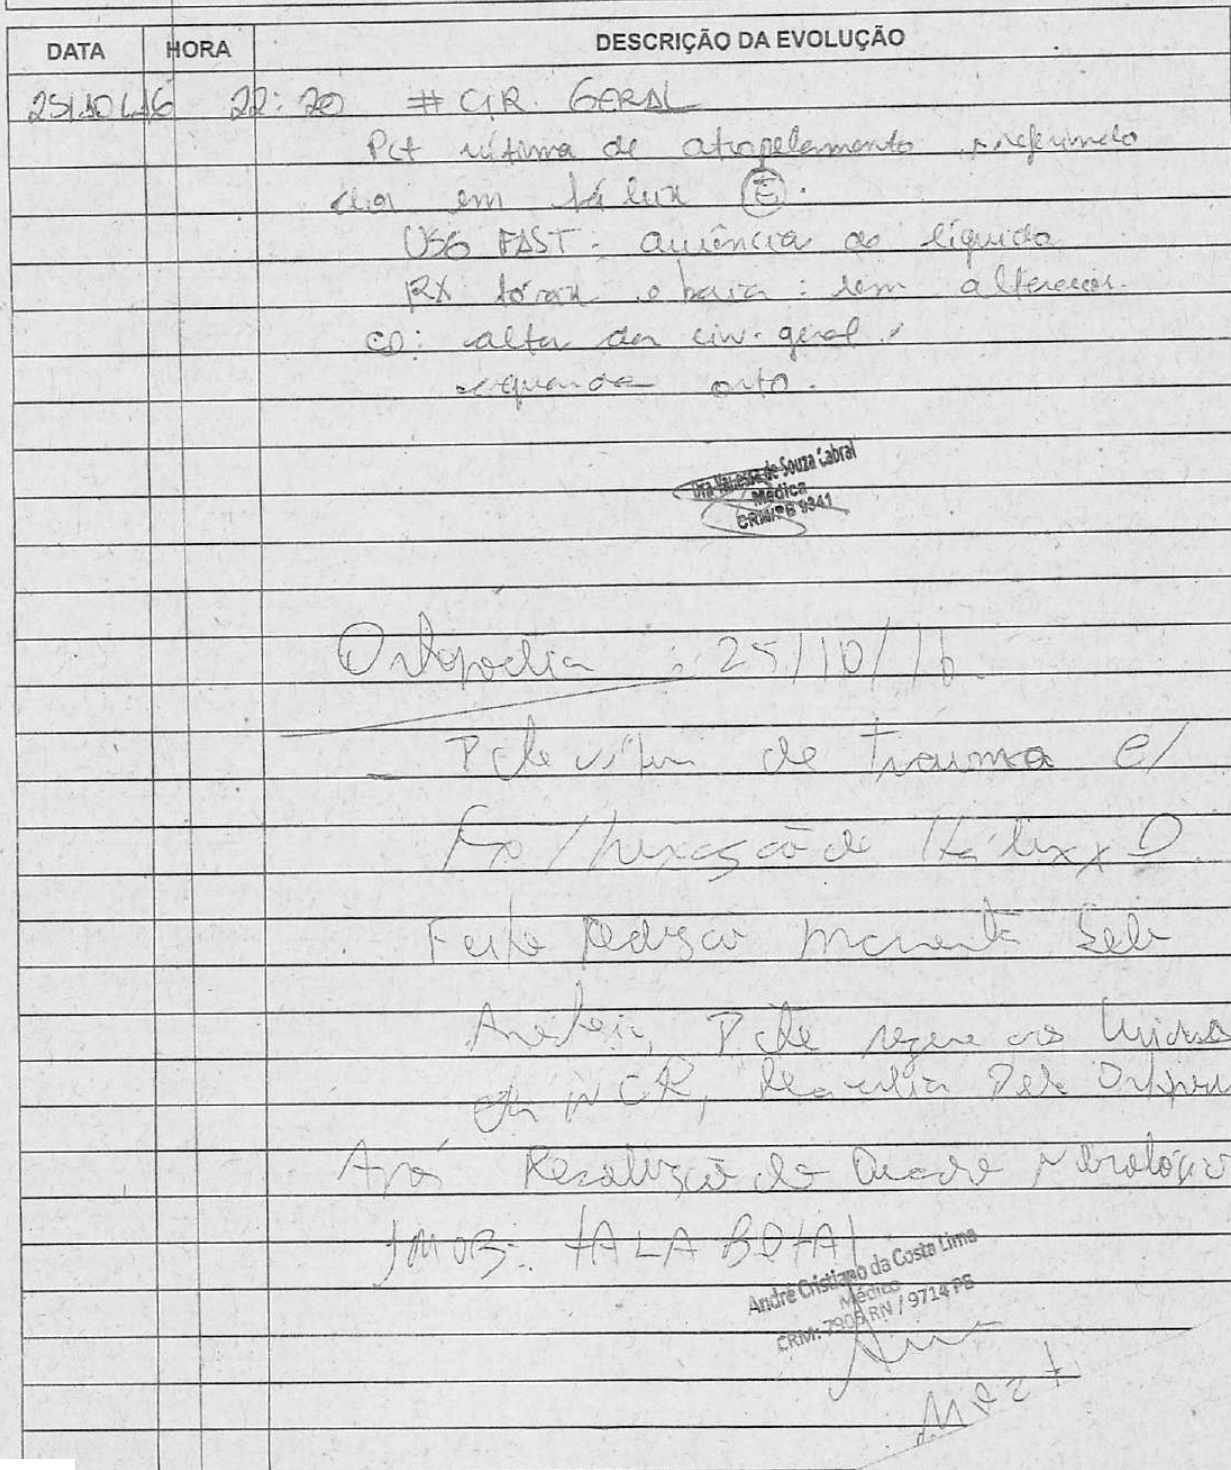 DATA HORA DESCRIÇÃO DA EVOLUÇÃO
25/10/16 22:20 # CIR. GERAL
Pct vítima de atropelamento, referindo
dor em hálux (E).
USG FAST: ausência de líquido
RX tórax e bacia: sem alterações.
CD: alta da cir. geral.
orto.
Dra Vanessa de Souza Cabral
Médica
CRM/PB 9341
Ortopedia : 25/10/16
- Pcte vítima de trauma c/
Fx / luxação de Hálux D.
Feito Redução Sob
Pcte aos
da NCR, Ortoped
Após Resolução do Quadro
IMOB: TALA BOTA
André Cristiano da Costa Lima
Médico
CRM: 7905 RN / 9714 PB